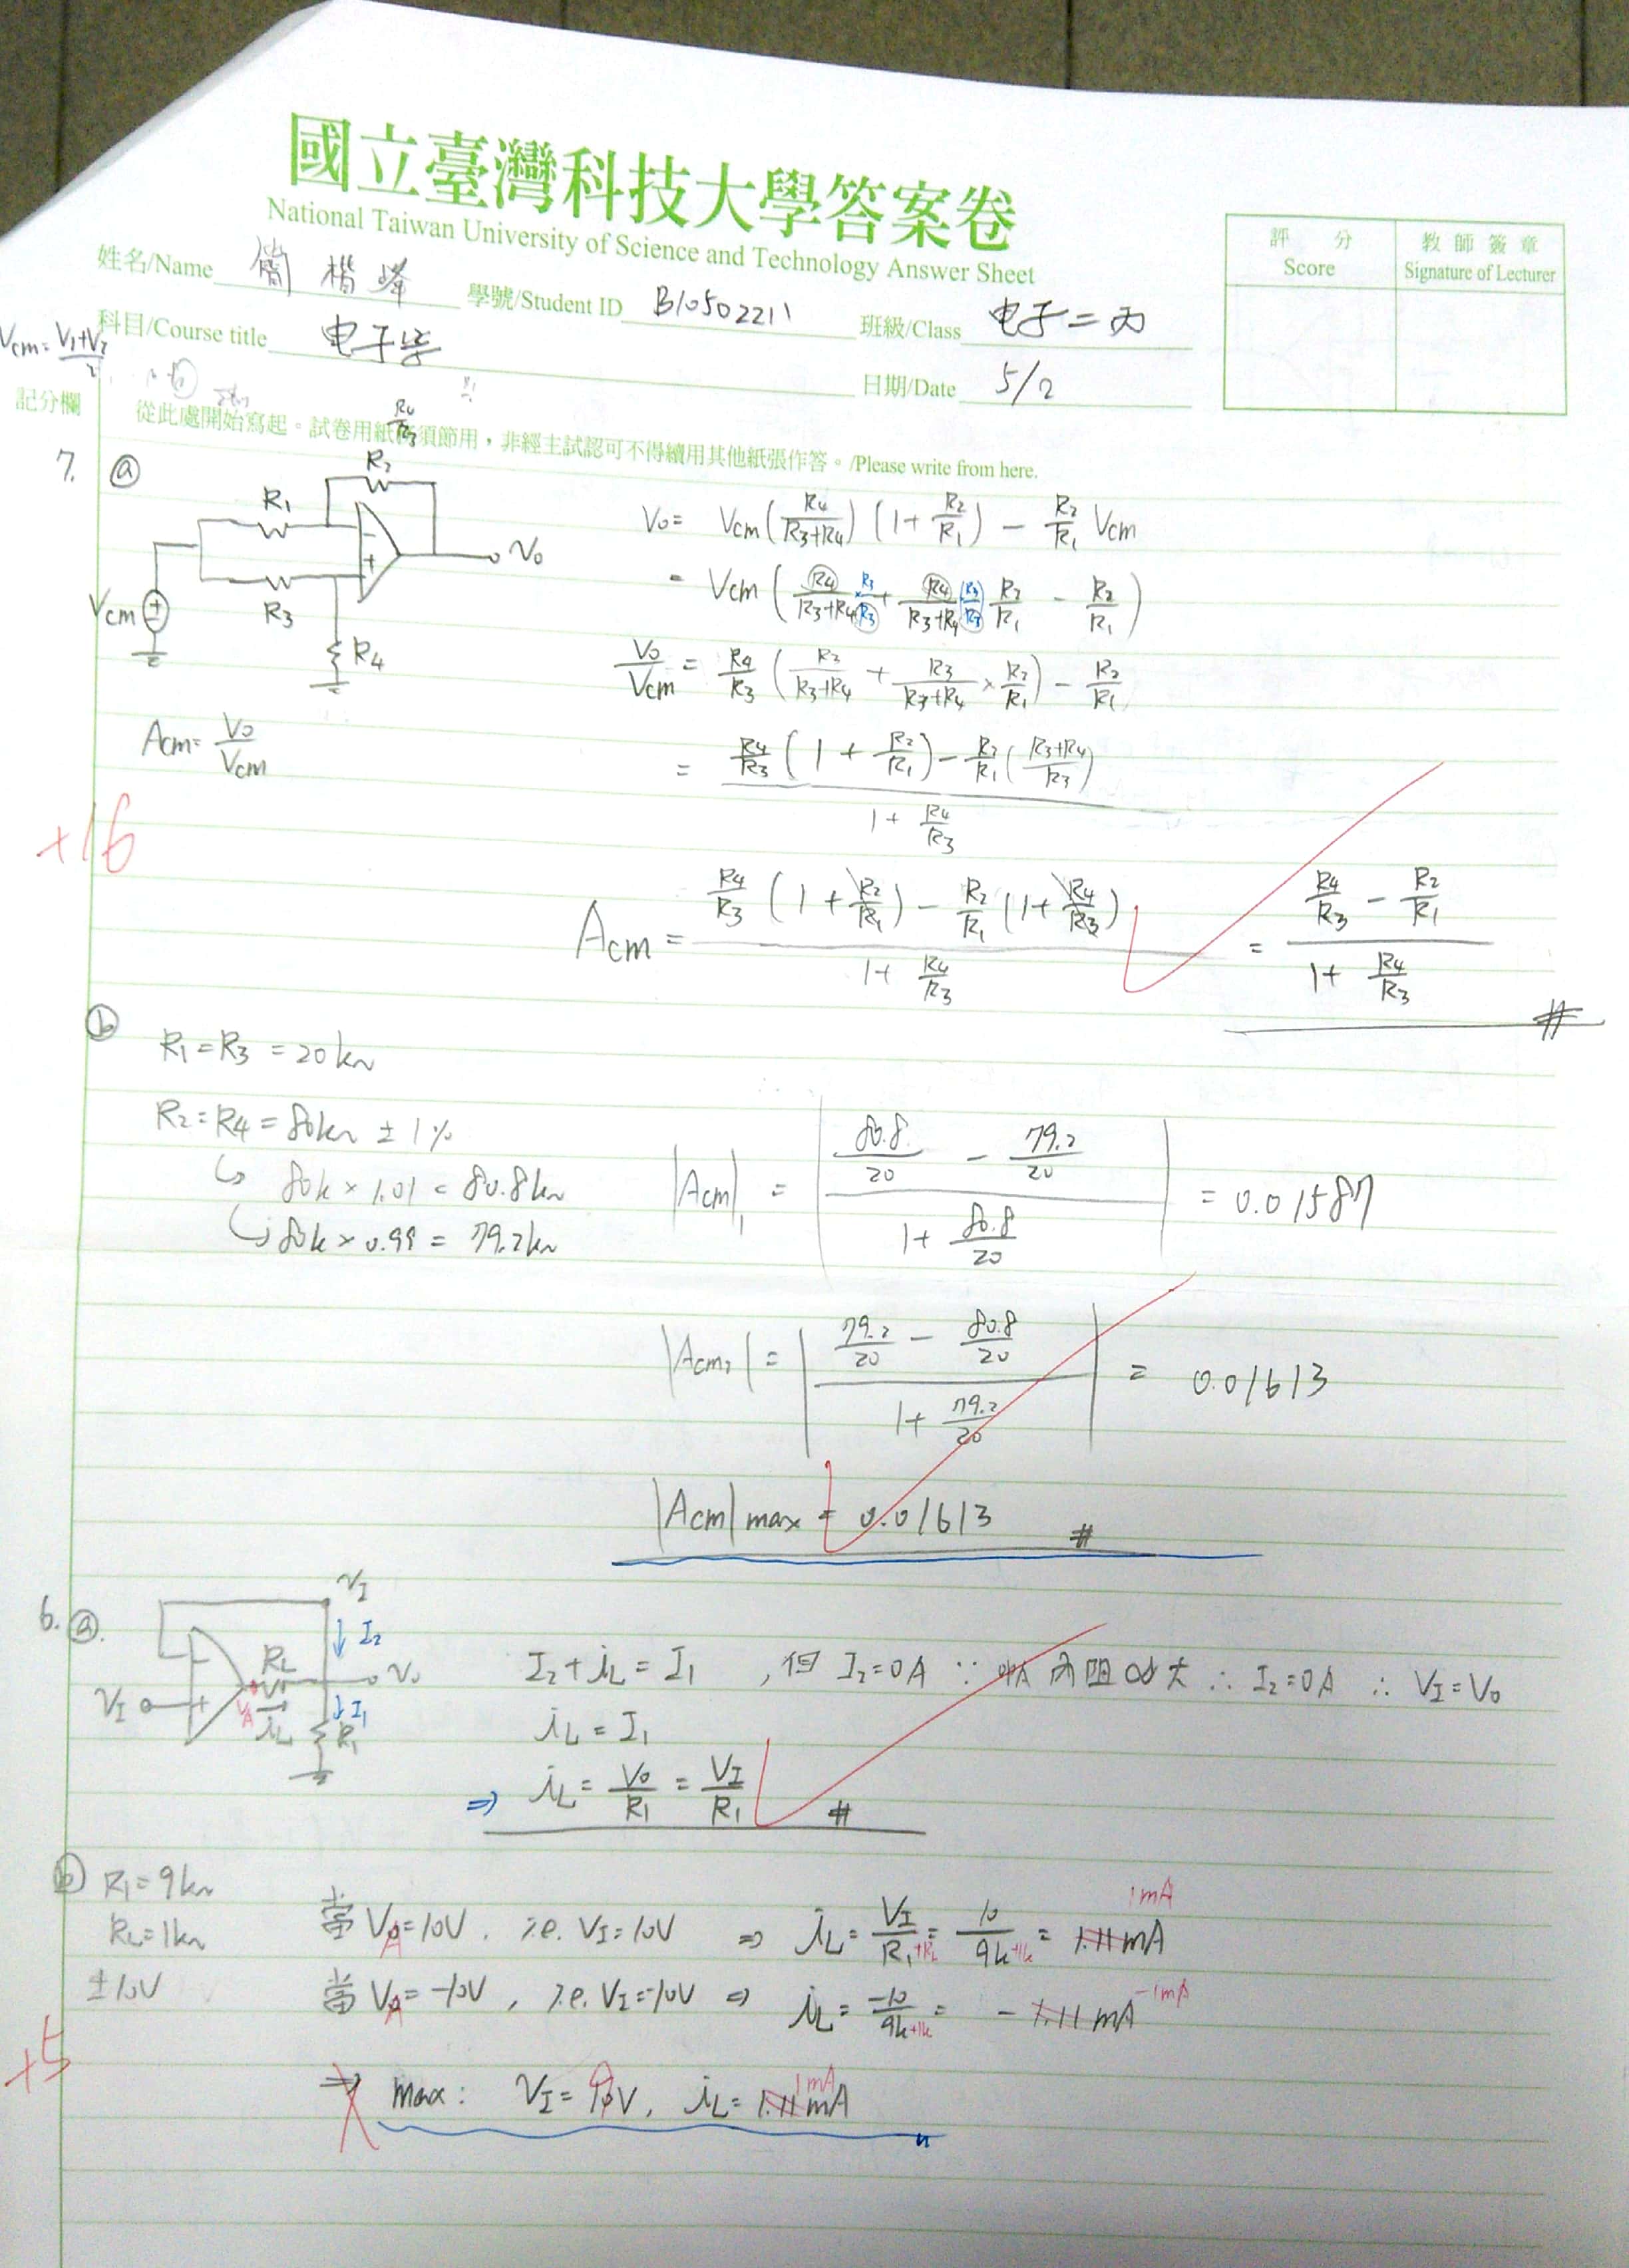 國立臺灣科技大學答案卷
National Taiwan University of Science and Technology Answer Sheet
評 分 教師簽章
Score Signature of Lecturer
姓名/Name 簡楷峰 學號/Student ID B10502211 班級/Class 电子二丙
科目/Course title 电子学 日期/Date 5/2
Vcm = (V1+V2)/2
記分欄
從此處開始寫起。試卷用紙務須節用，非經主試認可不得續用其他紙張作答。/Please write from here.
R4/R3
7. ⓐ
R2
R1
Vo
R3
Vcm
R4
Vo = Vcm (R4/(R3+R4)) (1 + R2/R1) - R2/R1 Vcm
= Vcm (R4/(R3+R4) × R3/R3 + R4/(R3+R4) (R3/R3) R2/R1 - R2/R1)
Vo/Vcm = R4/R3 (R3/(R3+R4) + R3/(R3+R4) × R2/R1) - R2/R1
Acm = Vo/Vcm
= (R4/R3 (1 + R2/R1) - R2/R1 ((R3+R4)/R3)) / (1 + R4/R3)
+16
Acm = (R4/R3 (1 + R2/R1) - R2/R1 (1 + R4/R3)) / (1 + R4/R3) = (R4/R3 - R2/R1) / (1 + R4/R3) #
ⓑ
R1 = R3 = 20kΩ
R2 = R4 = 80kΩ ± 1%
↳ 80k × 1.01 = 80.8kΩ
↳ 80k × 0.99 = 79.2kΩ
|Acm|1 = |(80.8/20 - 79.2/20) / (1 + 80.8/20)| = 0.01587
|Acm2| = |(79.2/20 - 80.8/20) / (1 + 79.2/20)| = 0.01613
|Acm|max = 0.01613 #
6. ⓐ
VI
I2
RL
Vo
VI
VA
iL
I1
R1
I2 + iL = I1 , 但 I2 = 0A ∵ 內阻∞大 ∴ I2 = 0A ∴ VI = Vo
iL = I1
⇒ iL = Vo/R1 = VI/R1 #
ⓑ R1 = 9kΩ
RL = 1kΩ
±10V
當 VA = 10V , i.e. VI = 10V ⇒ iL = VI/(R1+RL) = 10/(9k+1k) = 1.11mA 1mA
當 VA = -10V , i.e. VI = -10V ⇒ iL = -10/(9k+1k) = -1.11mA -1mA
+5
⇒ max : VI = 9V , iL = 1.11mA 1mA